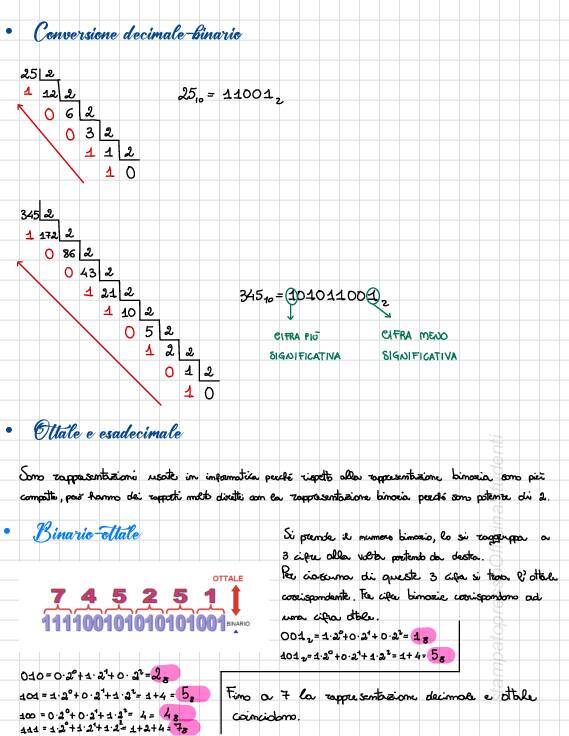 • Conversione decimale-binario
25 2
1 12 2
0 6 2
0 3 2
1 1 2
1 0
25₁₀ = 11001₂
345 2
1 172 2
0 86 2
0 43 2
1 21 2
1 10 2
0 5 2
1 2 2
0 1 2
1 0
345₁₀ = 101011001₂
CIFRA PIÙ
SIGNIFICATIVA
CIFRA MENO
SIGNIFICATIVA
• Ottale e esadecimale
Sono rappresentazioni usate in informatica perché rispetto alla rappresentazione binaria sono più
compatte, poi hanno dei rapporti molto diretti con la rappresentazione binaria perché sono potenze di 2.
• Binario-ottale
Si prende il numero binario, lo si raggruppa a
3 cifre alla volta partendo da destra.
Per ciascuna di queste 3 cifre si trova l'ottale
corrispondente. Tre cifre binarie corrispondono ad
una cifra ottale.
001₂ = 1·2⁰+0·2¹+0·2²= 1₈
101₂ = 1·2⁰+0·2¹+1·2²= 1+4= 5₈
OTTALE
7 4 5 2 5 1
111100101010101001 BINARIO
010 = 0·2⁰+1·2¹+0·2²= 2₈
101 = 1·2⁰+0·2¹+1·2²= 1+4= 5₈
100 = 0·2⁰+0·2¹+1·2²= 4= 4₈
111 = 1·2⁰+1·2¹+1·2²= 1+2+4= 7₈
Fino a 7 la rappresentazione decimale e ottale
coincidono.